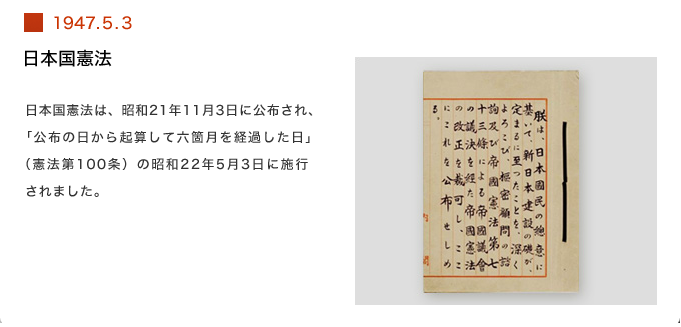 1947.5.3
日本国憲法
日本国憲法は、昭和21年11月3日に公布され、
「公布の日から起算して六箇月を経過した日」
（憲法第100条）の昭和22年5月3日に施行
されました。
朕は、日本國民の總意に
基いて、新日本建設の礎が、
定まるに至つたことを、深く
よろこび、樞密顧問の諮
詢及び帝國憲法第七
十三條による帝國議會
の議決を經た帝國憲法
の改正を裁可し、ここ
にこれを公布せしめ
る。